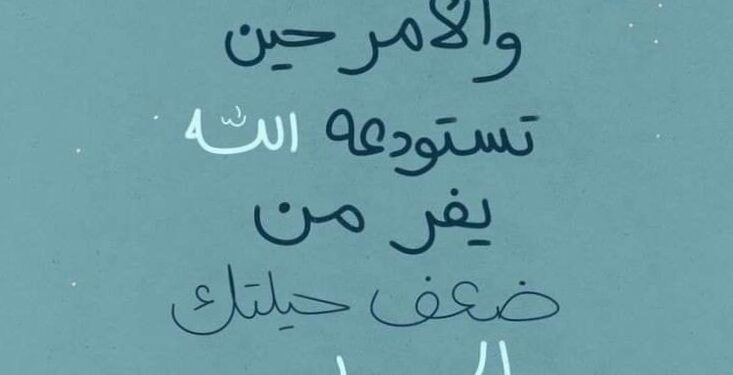 والأمر حين
تستودعه الله
يفر من
ضعف حيلتك